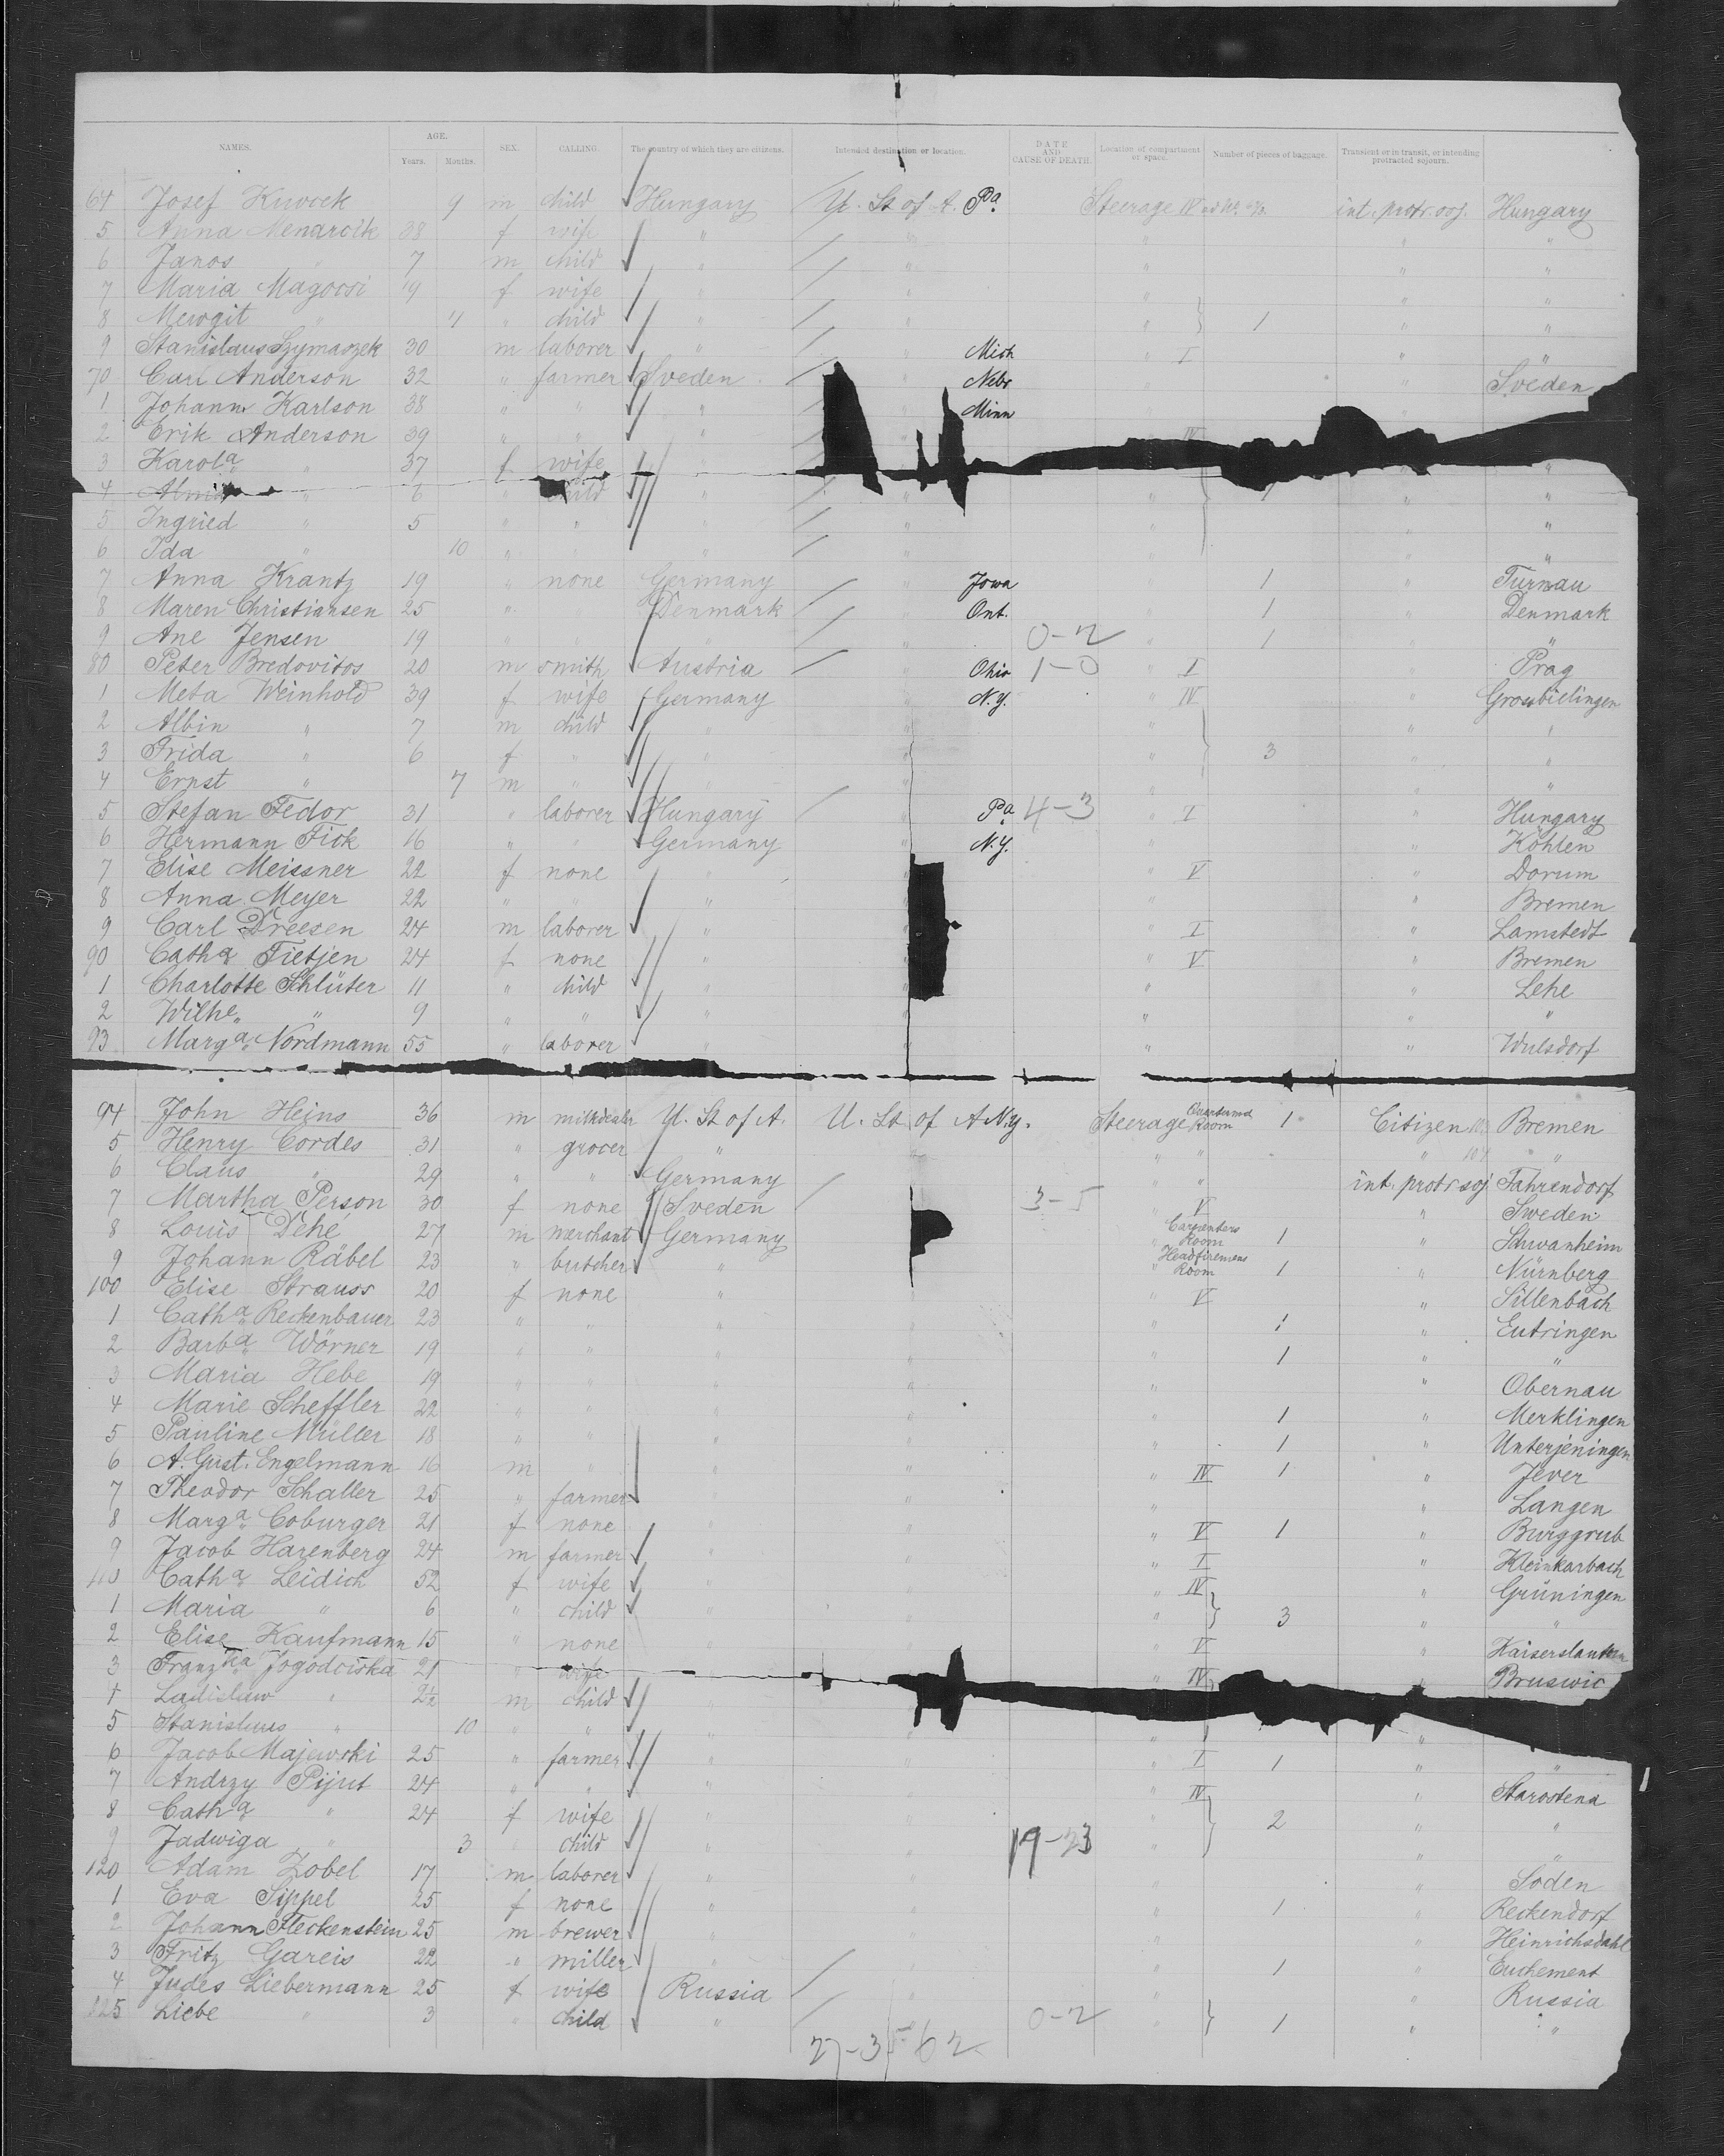 NAMES. AGE. Years. Months. SEX. CALLING. The country of which they are citizens. Intended destination or location. DATE AND CAUSE OF DEATH. Location of compartment or space. Number of pieces of baggage. Transient or in transit, or intending protracted sojourn.
64 Josef 9 m child Hungary U. St of A. Pa. Steerage IV int. protr. soj. Hungary
5 Anna 38 f wife " " " " "
6 Janos " 7 m child " " " " "
7 Maria Magocsi 19 f wife " " " " "
8 " " child " " " 1 " "
9 Stanislaus Szymaszek 30 m laborer " " Mich " I " "
70 Carl Anderson 32 " farmer Sveden " Nebr " " Sveden
1 Johann Karlson 38 " " " Minn
2 Erik Anderson 39 " " " " IV
3 Karola " 37 f wife " "
4 " 6 " child " " " " "
5 Ingried " 5 " " " " " "
6 Ida " 10 " " " " " " "
7 Anna Krantz 19 " none Germany " Jowa " 1 " Turnau
8 Maren Christiansen 25 " " Denmark " Ont. " 1 " Denmark
9 Ane Jensen 19 " " " " 0-2 " 1 " "
80 Peter Bredovitos 20 m smith Austria " Ohio 1-0 " I " Prag
1 Meta Weinhold 39 f wife Germany " N.Y. " IV " Grossbielingen
2 Albin " 7 m child " " " " "
3 Frida " 6 f " " " " 3 " "
4 Ernst " 7 m " " " " " "
5 Stefan Fedor 31 " laborer Hungary " Pa. 4-3 " I " Hungary
6 Hermann Fick 16 " " Germany " N.Y. " " Köhlen
7 Elise Meissner 22 f none " " V " Dorum
8 Anna Meyer 22 " " " " " Bremen
9 Carl Dreesen 24 m laborer " " I " Lamstedt
90 Catha. Tietjen 24 f none " " V " Bremen
1 Charlotte Schlüter 11 " child " " " Lehe
2 Wilhe. " 9 " " " " " " "
93 Marga. Nordmann 55 " laborer " " " " Wulsdorf
94 John Heins 36 m milkdealer U. St of A. U. St of A N.Y. Steerage Room 1 Citizen Bremen
5 Henry Cordes 31 " grocer " " " " " "
6 Claus " 29 " " Germany " " int. protr soj Fahrendorf
7 Martha Person 30 f none Sveden 3-5 " V " Sweden
8 Louis Dehé 27 m merchant Germany " Carpenters Room 1 " Schwanheim
9 Johann Räbel 23 " butcher " " Headfiremens Room 1 " Nürnberg
100 Elise Strauss 20 f none " " " V " Sillenbach
1 Catha. Reckenbauer 23 " " " " " 1 " Eutringen
2 Barba. Wörner 19 " " " " " 1 " "
3 Maria Hebe 19 " " " " " " Obernau
4 Marie Scheffler 22 " " " " " 1 " Merklingen
5 Pauline Müller 18 " " " " " 1 " Unterjeningen
6 A. Gust. Engelmann 16 m " " " " IV 1 " Jever
7 Theodor Schaller 25 " farmer " " " " Langen
8 Marga. Coburger 21 f none " " " V 1 " Burggrub
9 Jacob Harenberg 24 m farmer " " " I " Kleinkarbach
110 Catha. Leidich 52 f wife " " " IV " Grüningen
1 Maria " 6 " child " " " 3 " "
2 Elise Kaufmann 15 " none " " V " Kaiserslautern
3 Franzka. Jogodciska 21 " wife " " IV " Bruswic
4 Ladislaw " 2½ m child
5 Stanislaus " 10 " " " " " "
6 Jacob Majewski 25 " farmer " " " I 1 " "
7 Andrzy Pijut 24 " " " " IV " Starostena
8 Catha. " 24 f wife " " " 2 " "
9 Jadwiga " 3 " child " " 19-23 " " "
120 Adam Zobel 17 m laborer " " " " Soden
1 Eva Sippel 25 f none " " " 1 " Reckendorf
2 Johann Fleckenstein 25 m brewer " " " " Heinrichsdahl
3 Fritz Gareis 22 " miller " " " 1 "
4 Judes Liebermann 25 f wife Russia " " " Russia
125 Liebe " 3 " child " " 0-2 " 1 " "
27-3562